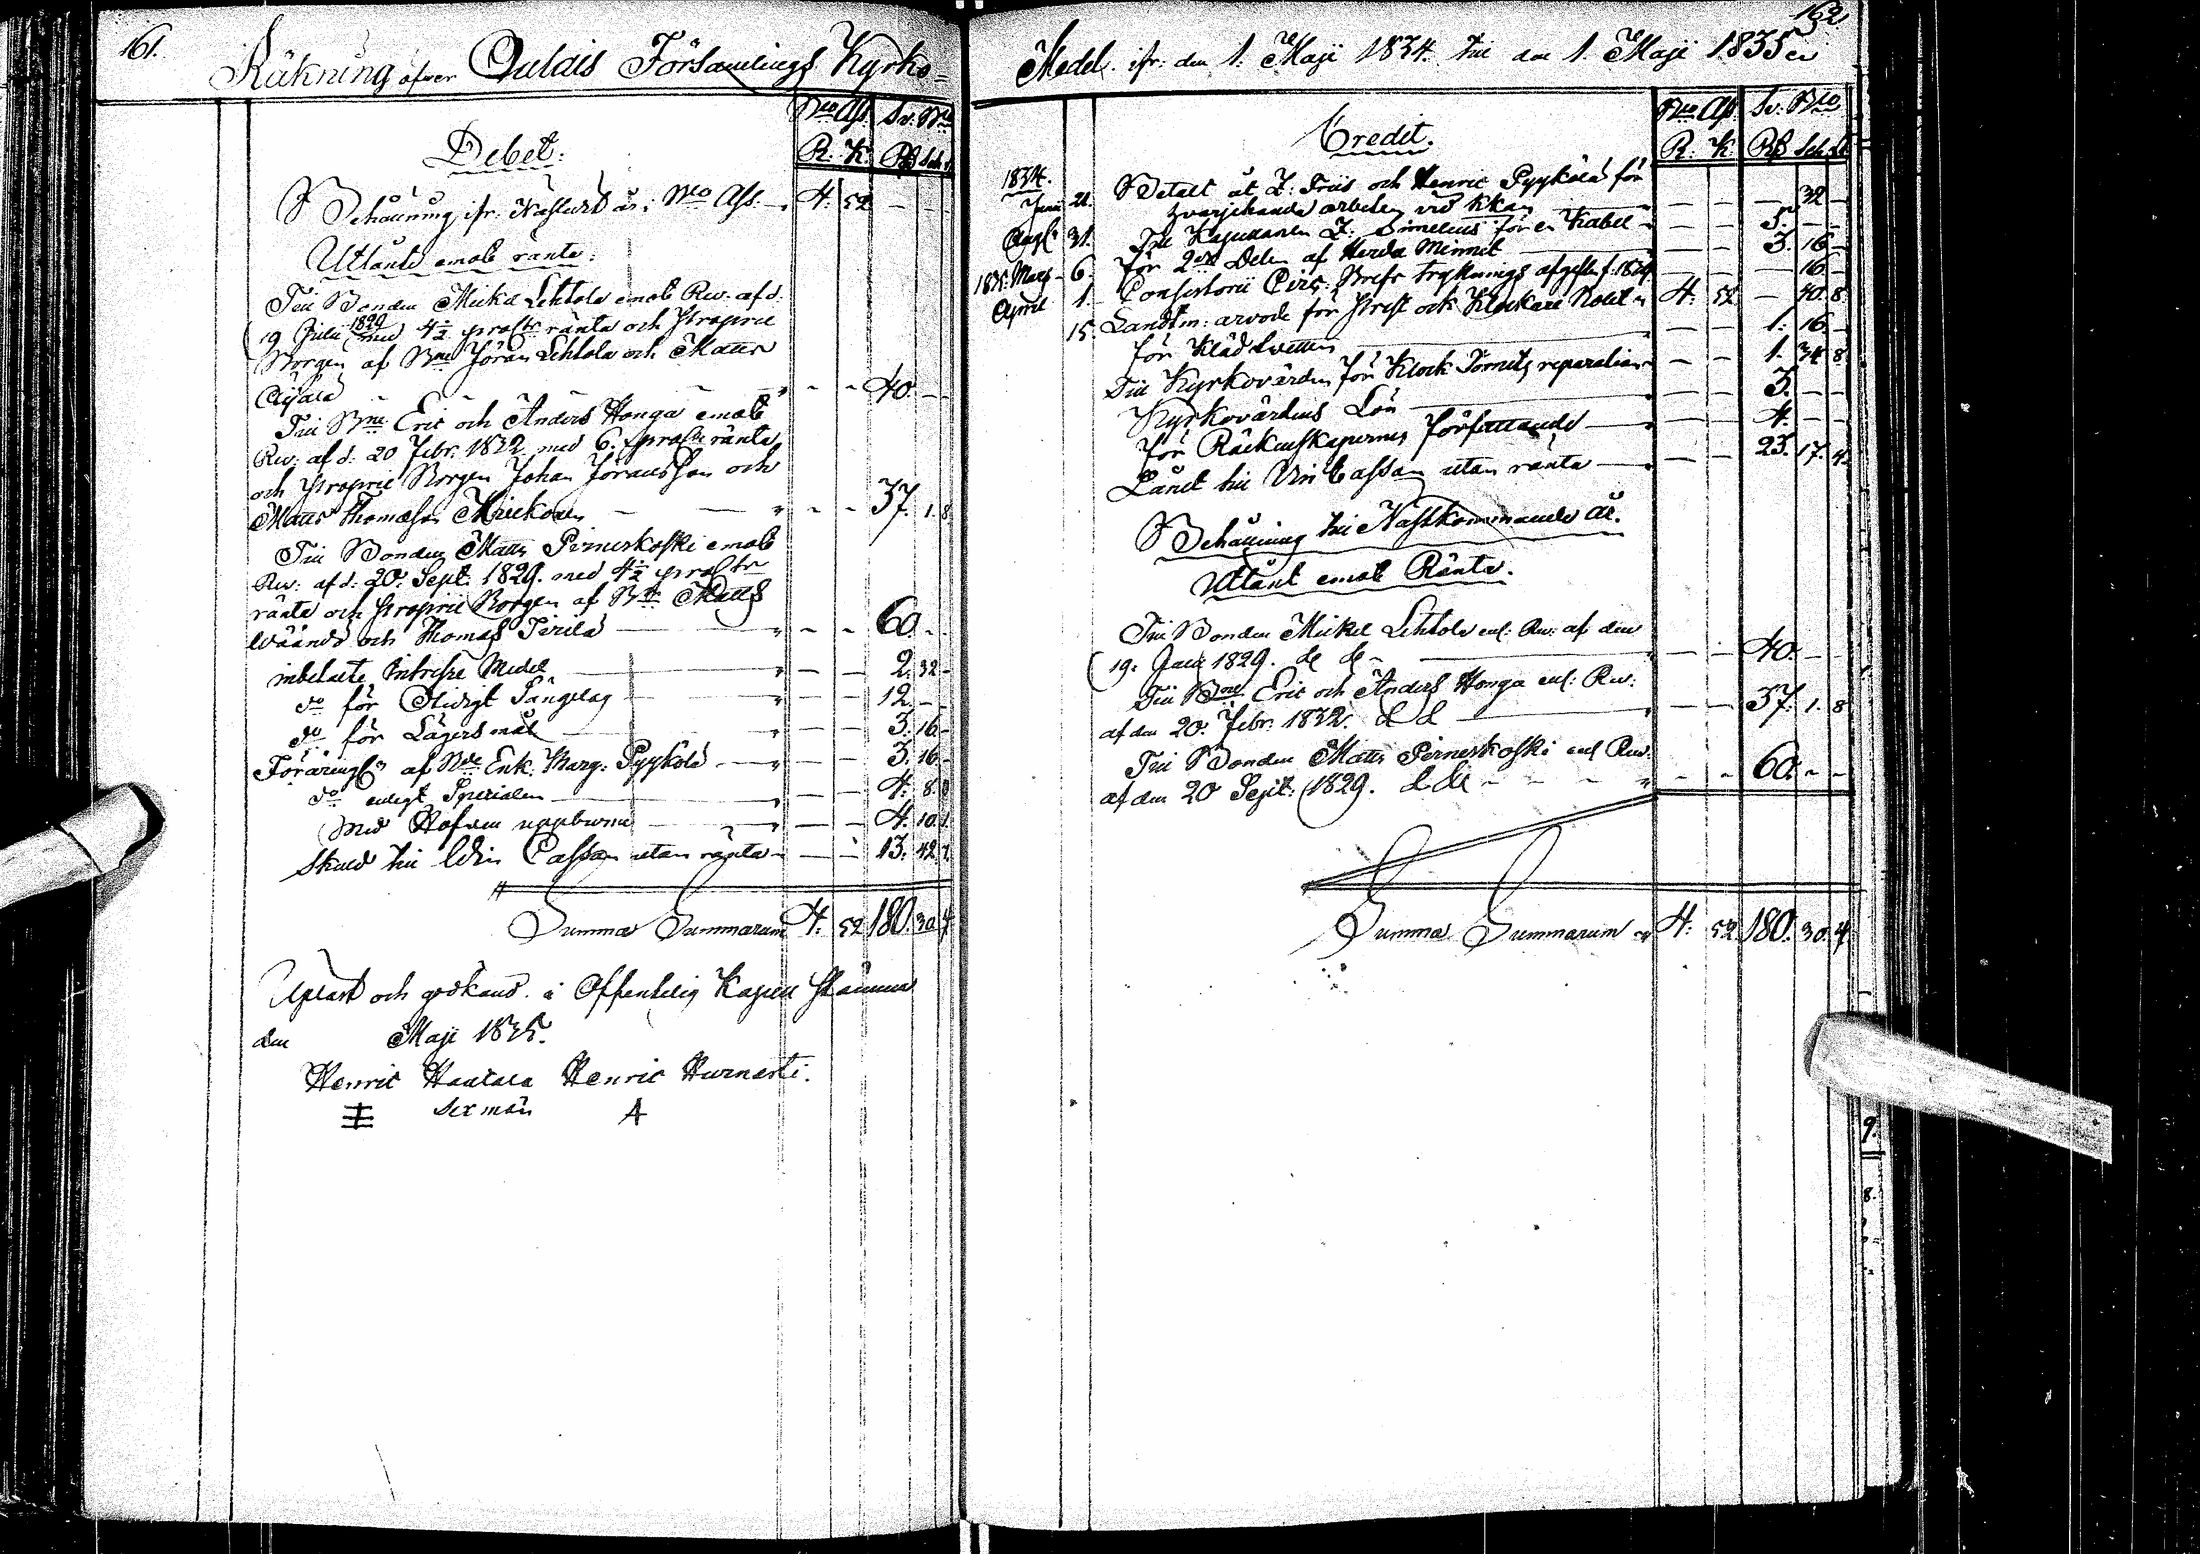 161.
Räkning öfver Oulais Församlings Kyrko-
Bco Ass. Sv: Bco
Debet:
R. K. Rß Sch. st
Behållning ifr: Nästledt år, Bco Ass. 4. 52 — —
Utlånte emot ränta:
Till Bonden Mickel Lehtola emot Rev: af d.
19 Julii 1829 med 4½ procto ränta och proprie
Borgen af Bne Jöran Lehtola och Matts
Äijälä - - - 40. — —
Till Bne Eric och Anders Honga emot
Rev. af d. 20 Febr. 1832 med 6. procto ränta
och proprie Borgen Johan Jöransson och
Matts Thomasson — 37. 1. 8
Till Bonden Matts Pirneskoski emot
Rev: af d: 20. Sept. 1829. med 4½ procto
ränta och proprie Borgen af Bne Matts
och Thomas — 60. - -
inbetalte Intresse Medel — — — 2. 32 -
do för Stridigt Sängelag — — 12. — —
do för Lägersmål — — 3. 16. -
Föräringß af Bde Enk. Marg: Pyykölä — — — 3. 16. -
do enligt Specialen — — — 4. 8. 8
Med Håfven uppburne — — — 4. 10. 1
Skuld till Vin Cassan utan ränta — — 13. 42. 7
Summa Summarum 4. 52 180. 30. 4
Upläst och godkänd å Offentelig Kapell Stämma
den Maji 1835.
Henric Hautala Henric Hurnasti.
sexmän A
162
Medel ifr: den 1. Maji 1834. till den 1. Maji 1835
Bco Ass. Sv: Bco
Credit.
R. K. Rß Sch. st
1834.
Junii 21. Betalt åt Z: Friis och Henric Pyykölä för
hvarjehanda arbeten vid kkan — — — 32 -
Augß 31. Till Kapellanen Z: för en Kabel - — — 5. — -
För 2dra Delen af Herda Minnet — — 3. 16 -
1835. Mars - 6. Consistorii Circ: Brefs tryknings afgifter f. 1834 — — 16 -
April 1. Landtm: arvode för Prest och Klockare Bolet - 4. 52 — 40. 8.
15. för Kläd — — 1. 16. -
Till Kyrkovärden för Klock Tornets reparation — — 1. 34. 8
Kyrkovärdens Lön — — — 3. — -
För Räckenskapernes författande — — — 4. — -
Lånet till Vin Cassan utan ränta — — — 23. 17. 4.
Behållning till Nästkommande år.
Utlånt emot Ränta.
Till Bonden Mickel Lehtola enl: Rev: af den
19. Julii 1829. — — 40. — -
Till Bne Eric och Anders Honga enl: Rev:
af den 20. Febr. 1832. — — — 37. 1. 8
Till Bonden Matts Pirneskoski enl Rev:
af den 20 Sept: 1829. - - - 60. - -
Summa Summarum 4. 52 180. 30. 4
9.
8.